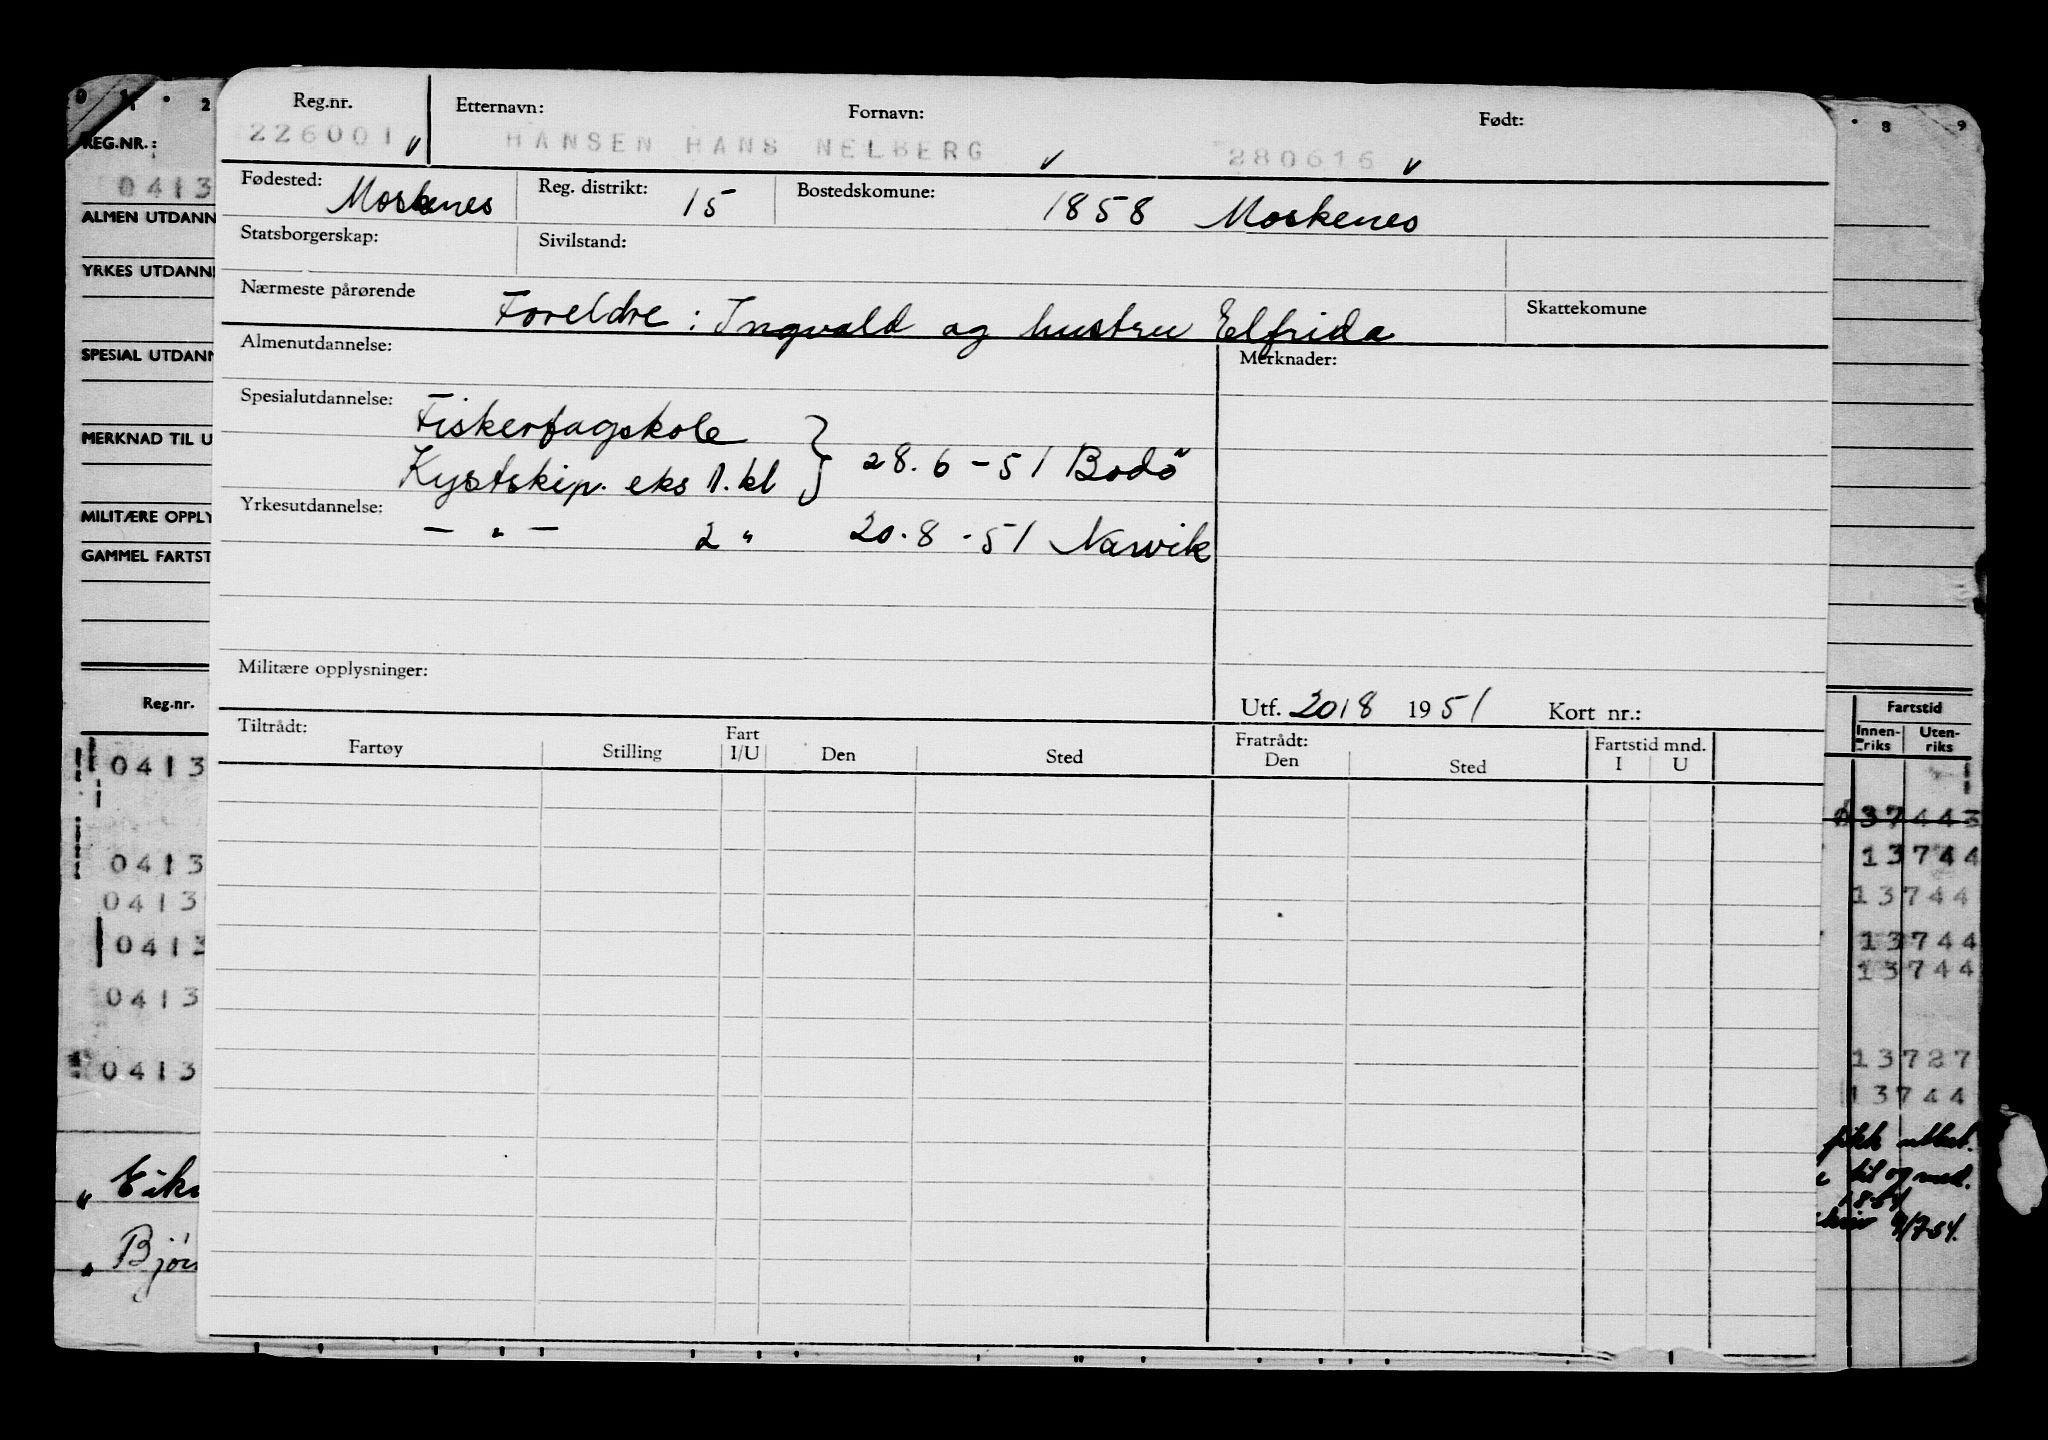 0 1 2
8 9
REG.NR.:
0413
ALMEN UTDANN
YRKES UTDANN
SPESIAL UTDANN
MERKNAD TIL U
MILITÆRE OPPLY
GAMMEL FARTST
Reg.nr. Etternavn: Fornavn: Født:
226001 HANSEN HANS NELBERG 280616
Fødested: Moskenes Reg. distrikt: 15 Bostedskomune: 1858 Moskenes
Statsborgerskap: Sivilstand:
Nærmeste pårørende Foreldre: Ingvald og hustru Elfrida Skattekomune
Almenutdannelse: Merknader:
Spesialutdannelse: Fiskerfagskole
Kystskip. eks 1. kl } 28.6-51 Bodö
Yrkesutdannelse: — " — 2 " 20.8-51 Narvik
Militære opplysninger:
Utf. 20/8 1951 Kort nr.:
Tiltrådt: Fratrådt:
Fartøy Stilling Fart I/U Den Sted Den Sted Fartstid mnd. I U
Reg.nr.
0413
0413
0413
0413
0413
0413
" 
Bjør
Fartstid
Innenriks Utenriks
37443
13744
13744
13744
13744
13727
13744
til og med.